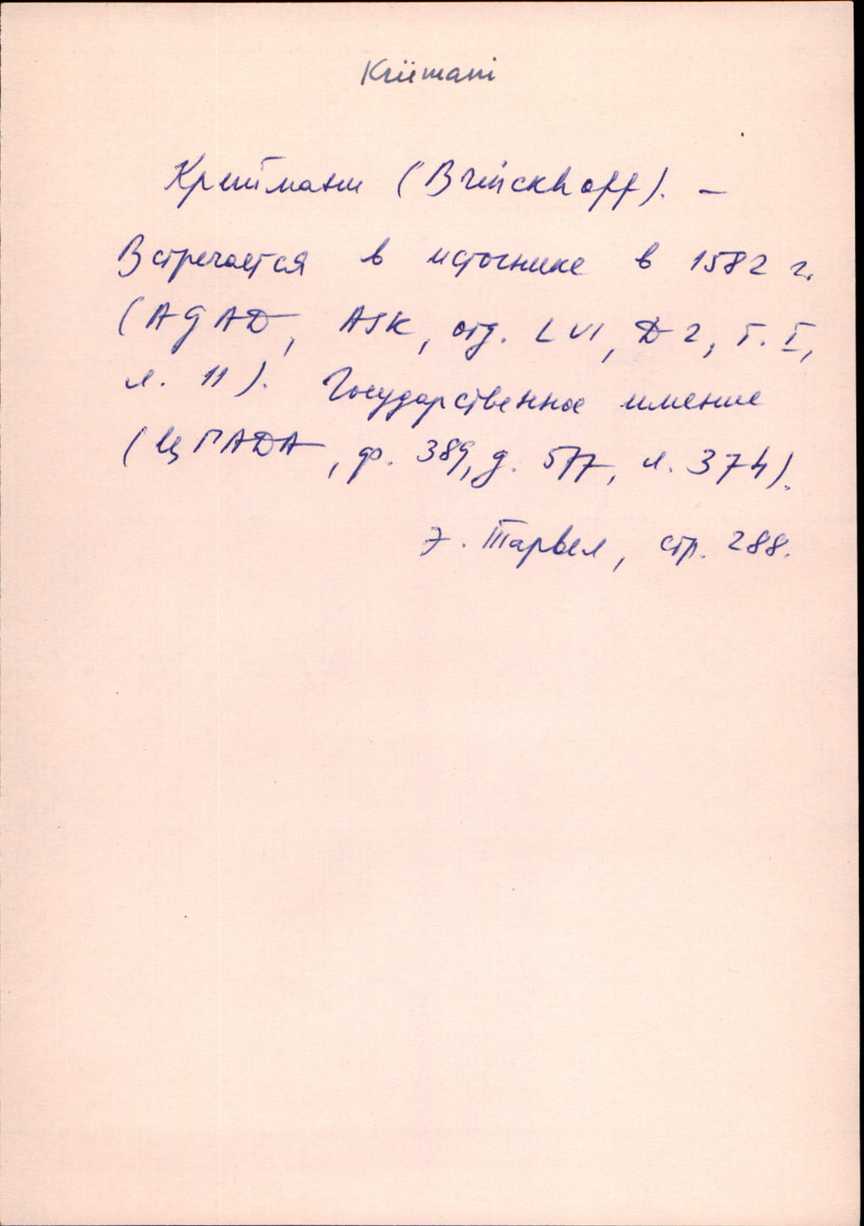 Krüümani
Крийmани (Brinckhoff). —
Встречается в источнике в 1582 г.
(AGAD, ASK, отд. LVI, D 2, т. I,
л. 11). Государственное имение
(ЦГАДА, ф. 389, д. 577, л. 374).
Э. Тарвел, стр. 288.